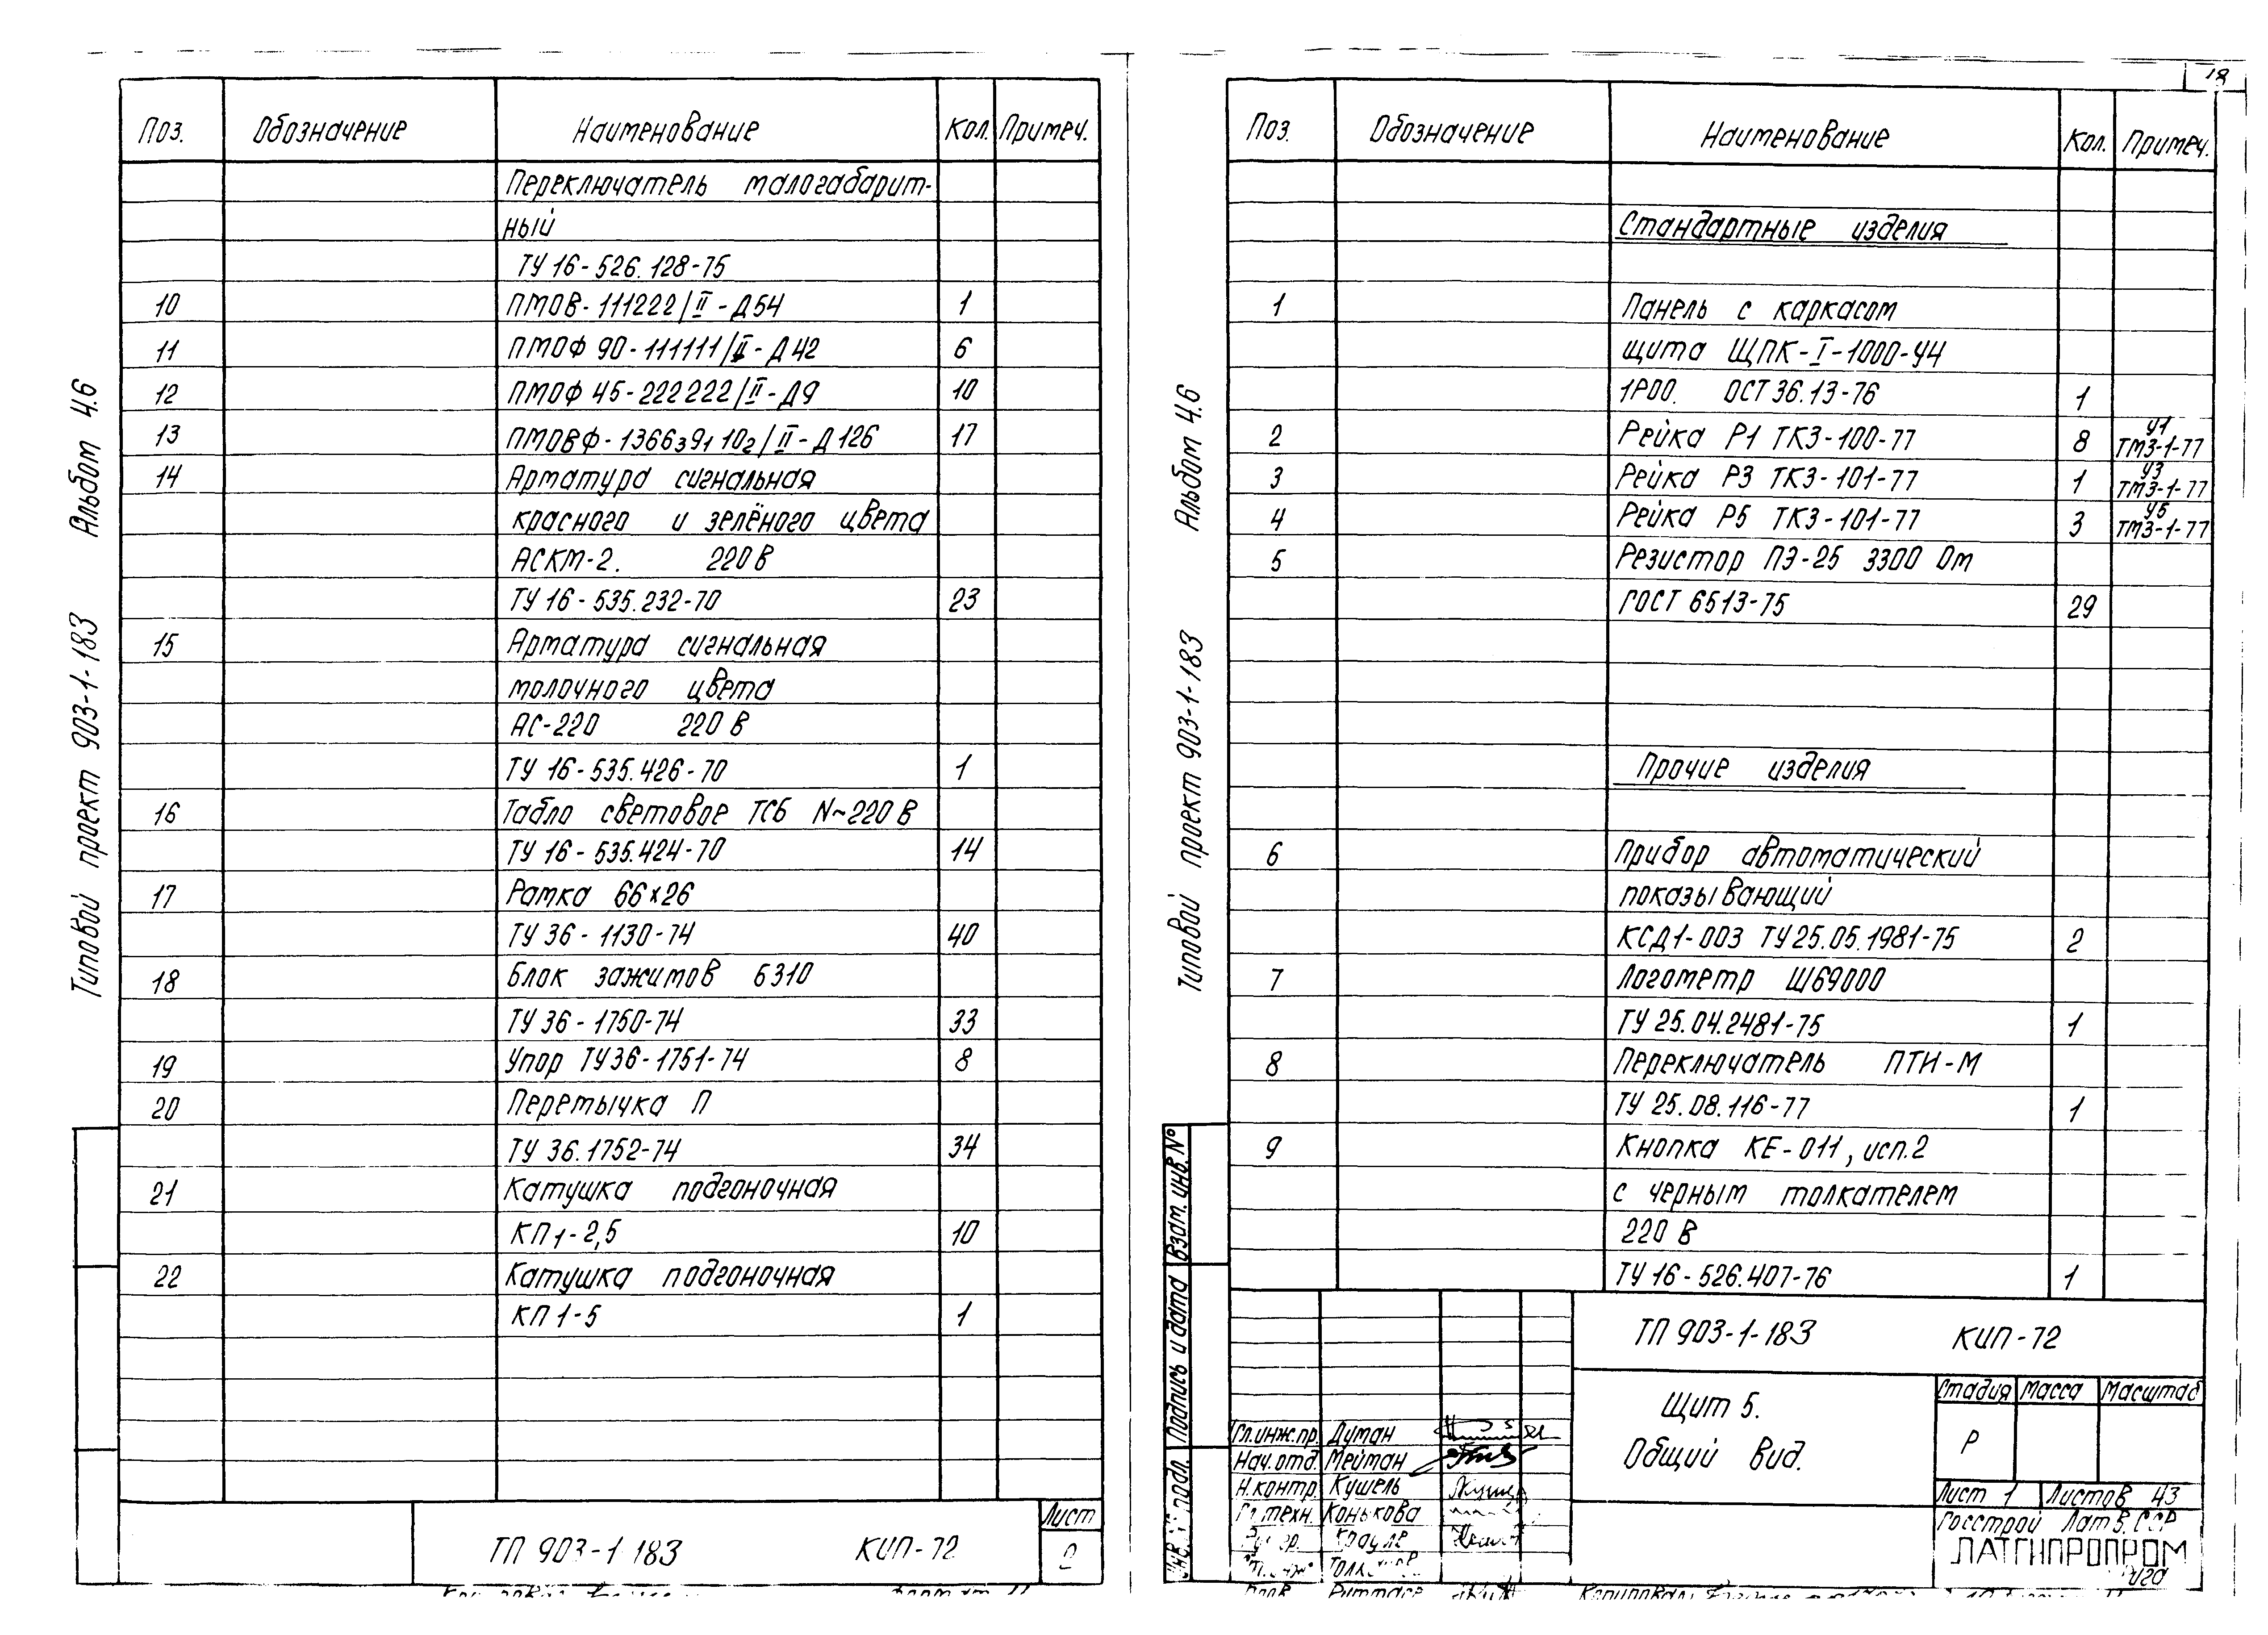 Типовой проект 903-1-183 Альбом 4.6
Поз. Обозначение Наименование Кол. Примеч.
Переключатель малогабарит-
ный
ТУ 16-526.128-75
10 ПМОВ-111222/II-Д54 1
11 ПМОФ 90-111111/II-Д42 6
12 ПМОФ 45-222222/II-Д9 10
13 ПМОВФ-1366з9110г/II-Д126 17
14 Арматура сигнальная
красного и зелёного цвета
АСКМ-2. 220В
ТУ 16-535.232-70 23
15 Арматура сигнальная
молочного цвета
АС-220 220В
ТУ 16-535.426-70 1
16 Табло световое ТСБ N~220В
ТУ 16-535.424-70 14
17 Рамка 66х26
ТУ 36-1130-74 40
18 Блок зажимов Б310
ТУ 36-1750-74 33
19 Упор ТУ36-1751-74 8
20 Перемычка П
ТУ 36.1752-74 34
21 Катушка подгоночная
КП1-2,5 10
22 Катушка подгоночная
КП1-5 1
ТП 903-1-183 КИП-72
Лист
2
18
Типовой проект 903-1-183 Альбом 4.6
Поз. Обозначение Наименование Кол. Примеч.
Стандартные изделия
1 Панель с каркасом
щита ЩПК-I-1000-У4
1Р00. ОСТ 36.13-76 1
2 Рейка Р1 ТК3-100-77 8 У1 ТМ3-1-77
3 Рейка Р3 ТК3-101-77 1 У3 ТМ3-1-77
4 Рейка Р5 ТК3-101-77 3 У5 ТМ3-1-77
5 Резистор ПЭ-25 3300 Ом
ГОСТ 6513-75 29
Прочие изделия
6 Прибор автоматический
показывающий
КСД1-003 ТУ25.05.1981-75 2
7 Логометр Ш69000
ТУ 25.04.2481-75 1
8 Переключатель ПТИ-М
ТУ 25.08.116-77 1
9 Кнопка КЕ-011, исп.2
с черным толкателем
220 В
ТУ 16-526.407-76 1
Взам. инв. №
Подпись и дата
ТП 903-1-183 КИП-72
Щит 5.
Общий вид.
Стадия Масса Масштаб
Р
Лист 1 Листов 43
Госстрой Латв.ССР
ЛАТГИПРОПРОМ
Гл.инж.пр. Думан
Нач.отд. Мейман
Н.контр. Кушель
Гл техн. Конькова
Копировал: